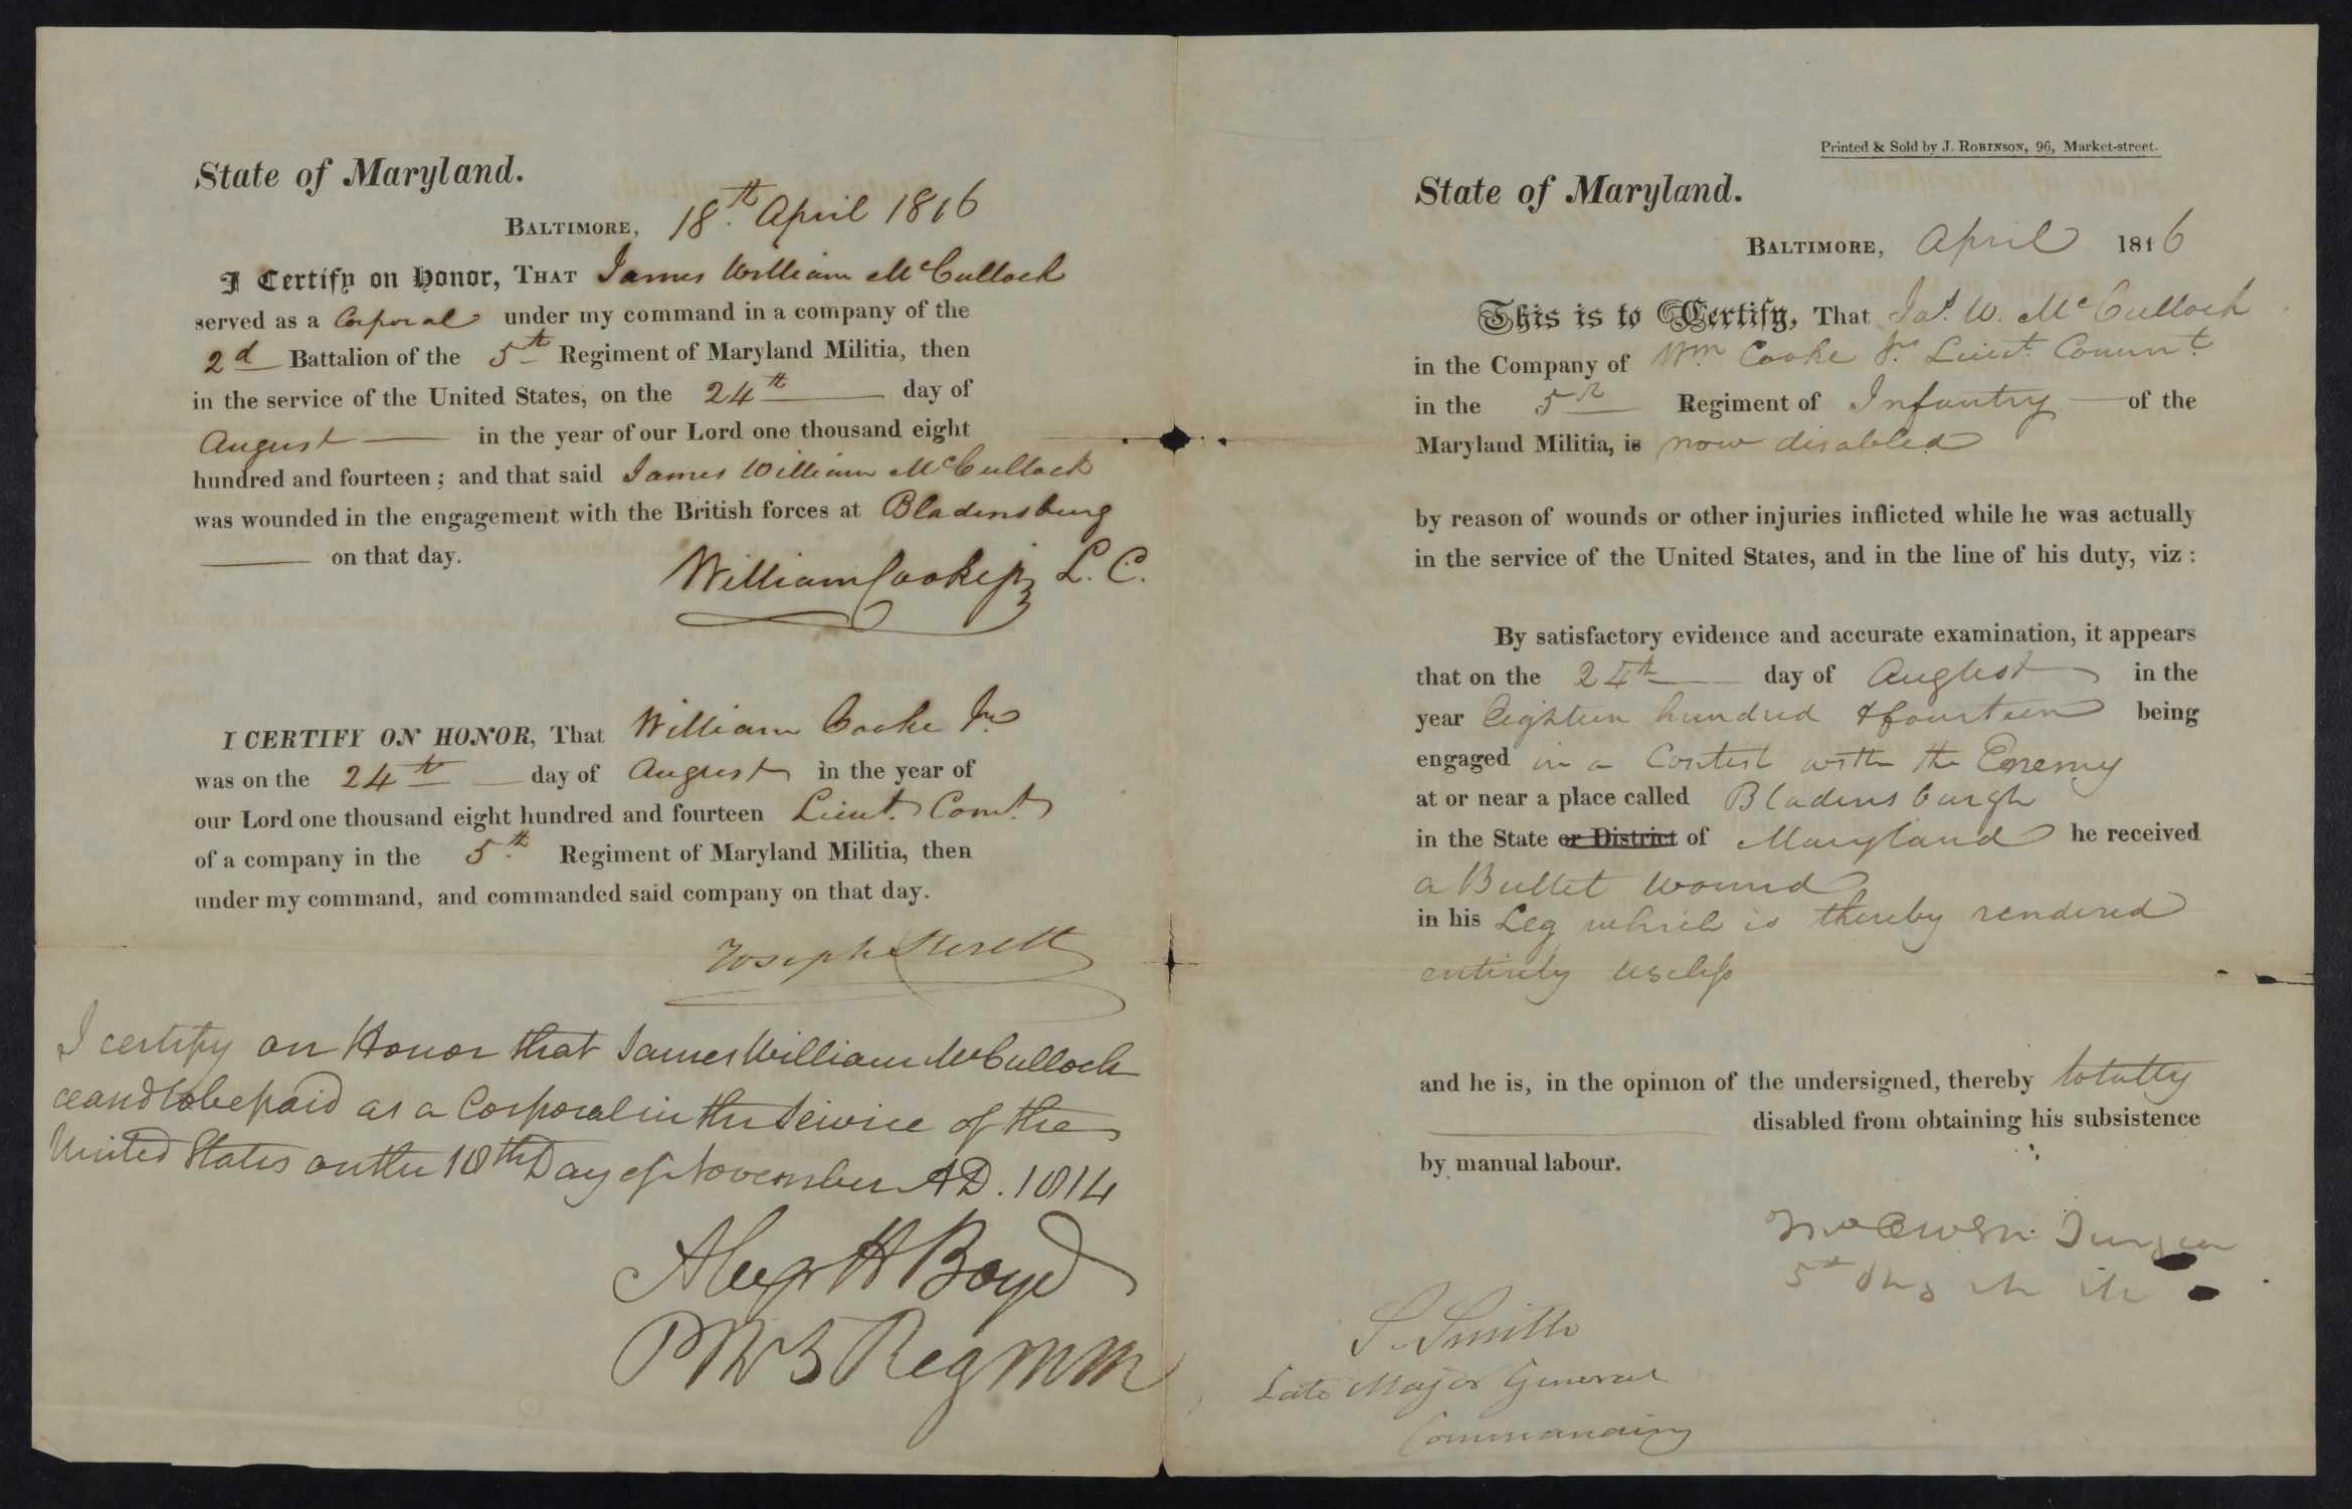 State of Maryland.
BALTIMORE, 18th. April 1816
I Certify on Honor, THAT James William McCulloch
served as a Corporal under my command in a company of the
2d Battalion of the 5th Regiment of Maryland Militia, then
in the service of the United States, on the 24th day of
August in the year of our Lord one thousand eight
hundred and fourteen ; and that said James William McCulloch
was wounded in the engagement with the British forces at Bladensburg
on that day.
William Cooke jr L. C.
I CERTIFY ON HONOR, That William Cooke Jr
was on the 24th day of August in the year of
our Lord one thousand eight hundred and fourteen Lieut. Comt.
of a company in the 5th. Regiment of Maryland Militia, then
under my command, and commanded said company on that day.
Joseph Sterett
I certify on Honor that James William McCulloch
ceased to be paid as a Corporal in the Service of the
United States on the 18th Day of November AD. 1814
Alexr H Boyd
PM 5 Reg MM
Printed & Sold by J. ROBINSON, 96, Market-street.
State of Maryland.
BALTIMORE, April 1816
This is to Certify, That Jas. W. McCulloch
in the Company of Wm Cooke Jr. Lieut. Commt.
in the 5th Regiment of Infantry of the
Maryland Militia, is now disabled
by reason of wounds or other injuries inflicted while he was actually
in the service of the United States, and in the line of his duty, viz :
By satisfactory evidence and accurate examination, it appears
that on the 24th day of August in the
year Eighteen hundred & fourteen being
engaged in a Contest with the Enemy
at or near a place called Bladensburgh
in the State or District of Maryland he received
a Bullet wound
in his Leg which is thereby rendered
entirely useless
and he is, in the opinion of the undersigned, thereby totally
disabled from obtaining his subsistence
by manual labour.
Owen Surgeon
5th Reg
S. Smith
Late Major General
Commanding